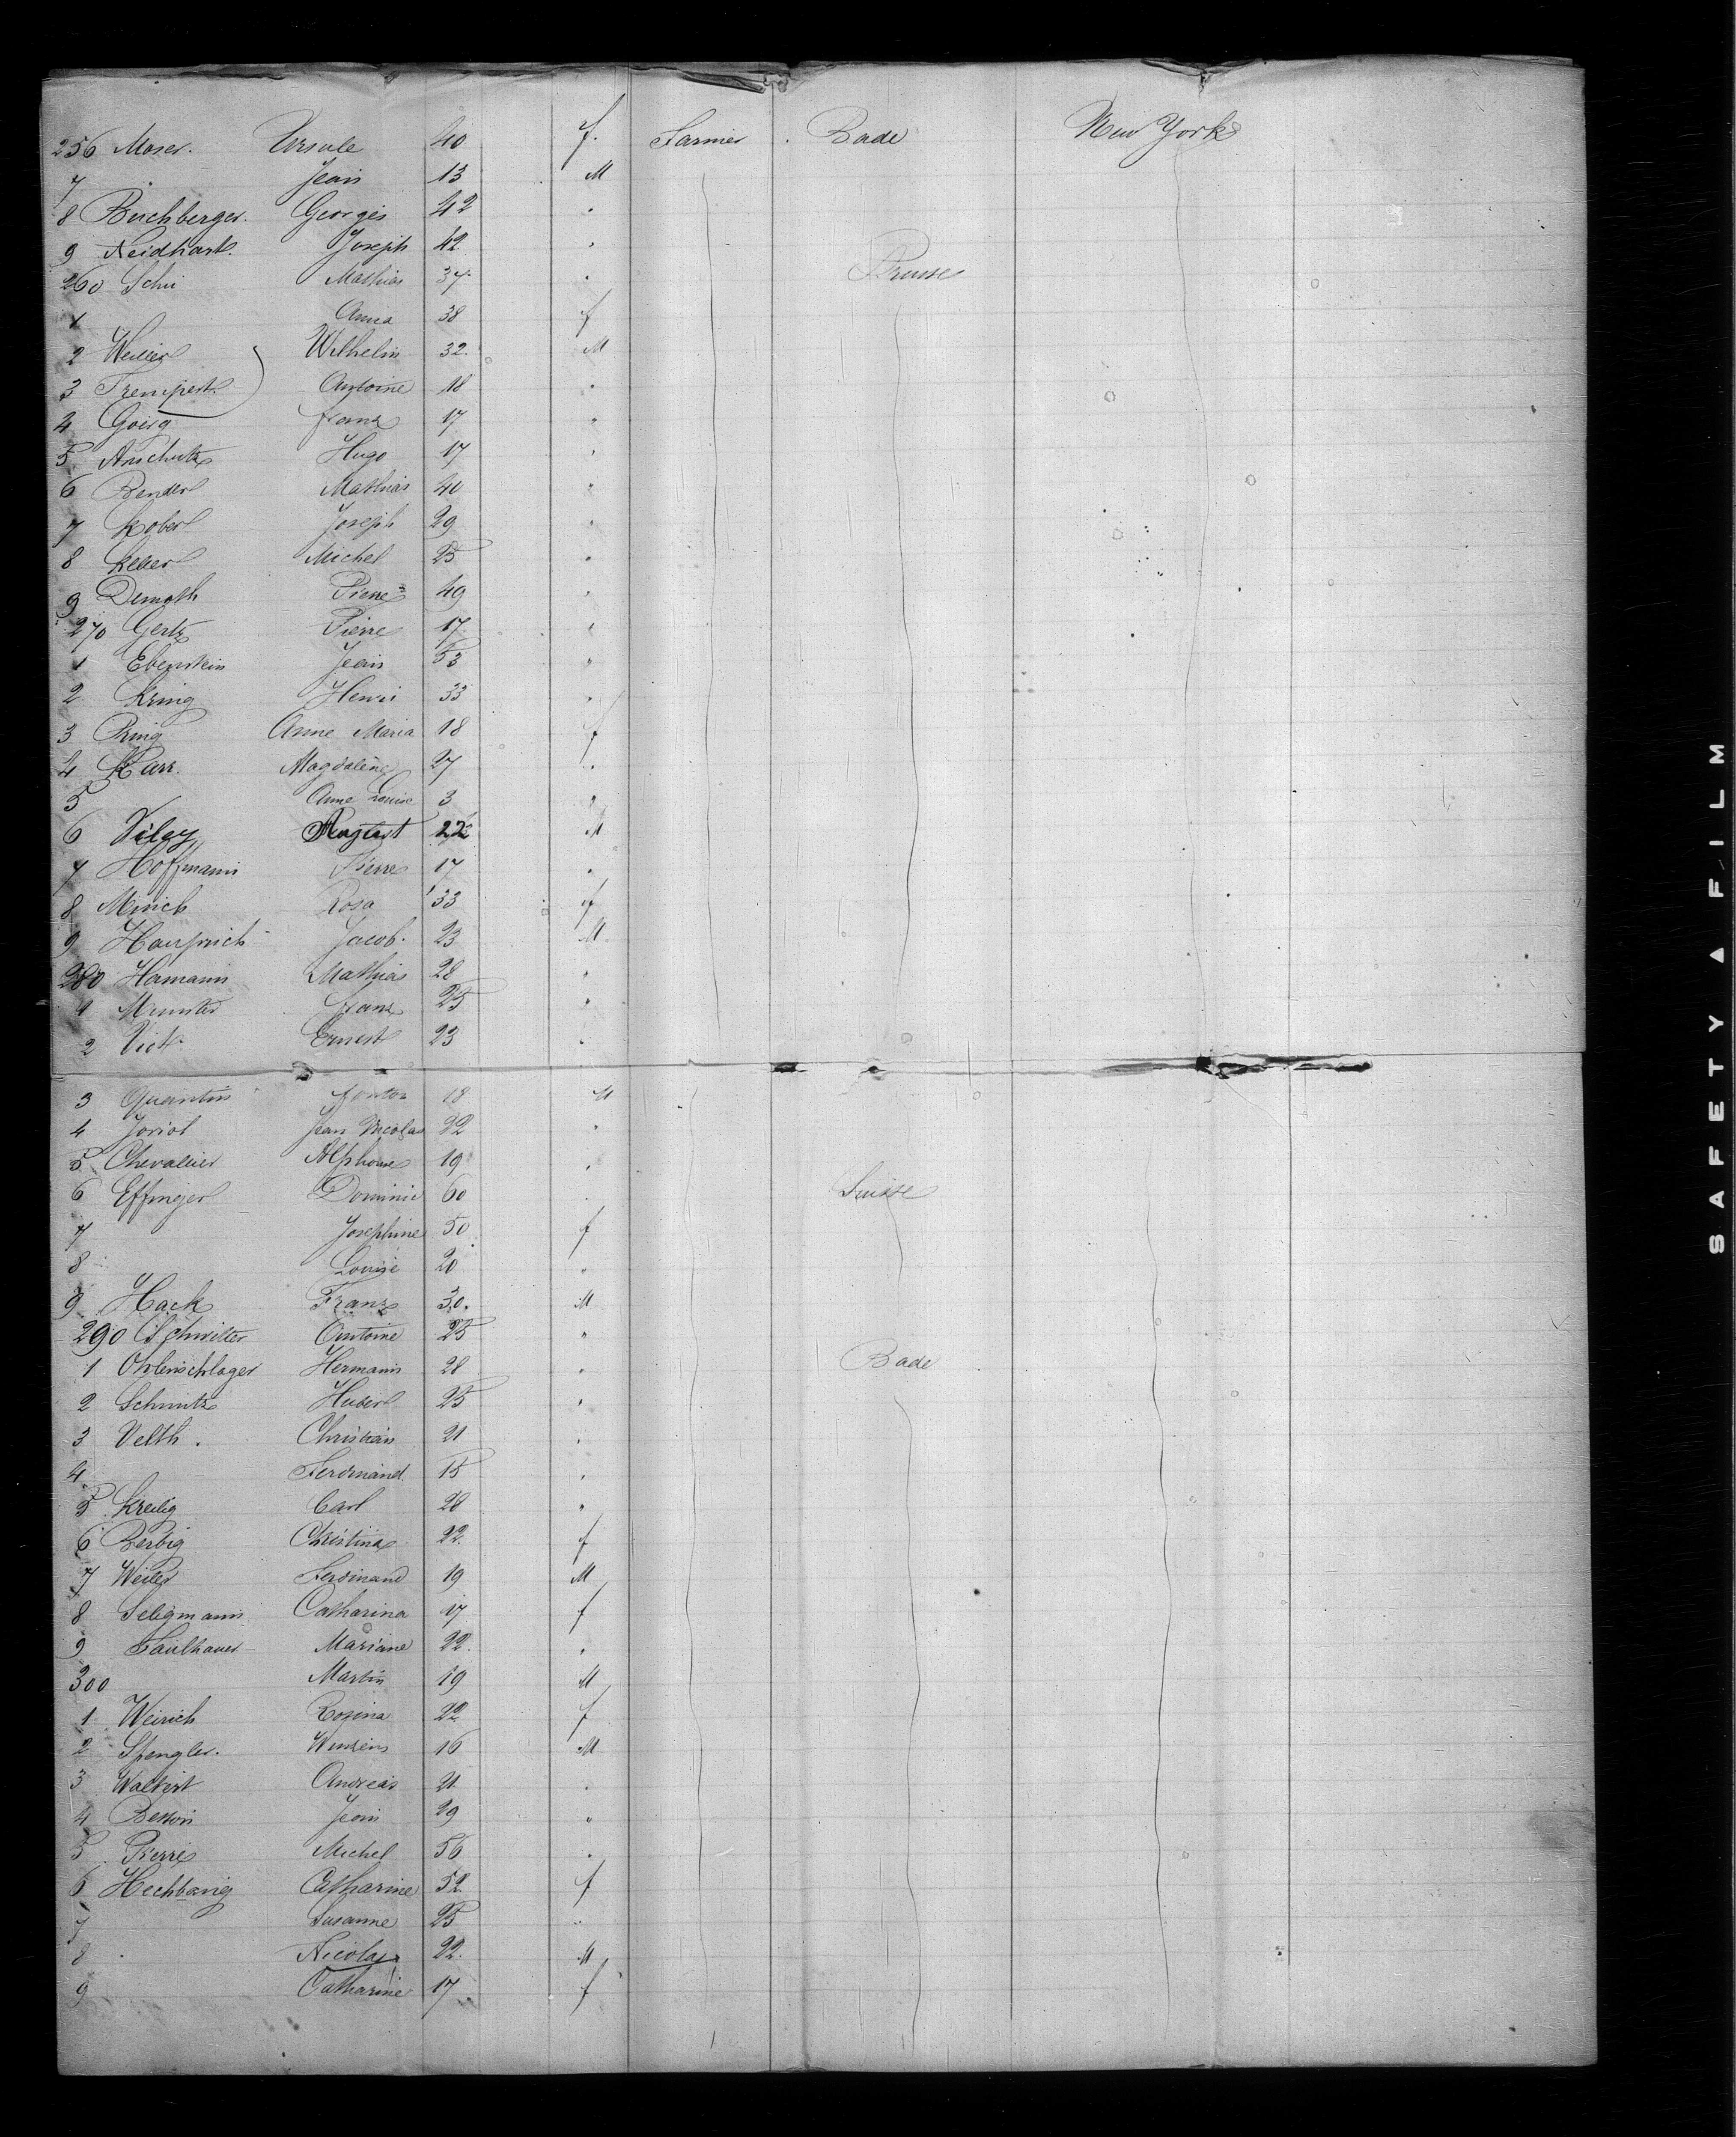 256 Moser. Ursule 40 f. Farmer . Bade New York
7 Jean 13 M
8 Buchberger. Georges 42 "
9 Neidhart. Joseph 42 "
260 Schu Mathias 37 " Prusse
1 Anna 38 f
2 Weiler Wilhelm 32. M
3 Trempert Antoine 18 "
4 Goerg Franz 17 "
5 Anschutz Hugo 17 "
6 Bender Mathias 40 "
7 Kober Joseph 29 "
8 Keller Michel 25 "
9 Demuth Pierre 49 "
270 Gertz Pierre 17 "
1 Ebenstein Jean 53 "
2 Kring Henri 33 "
3 Ring Anne Maria 18 f
4 Karr. Magdalene 27 "
5 Anne Louise 3 "
6 August 22 M
7 Hoffmann Pierre 17 "
8 Minich Rosa 33 f
9 Jacob. 23 M
280 Hamann Mathias 28 "
1 Munster Franz 25 "
2 Ernest 23 "
3 Quentin 18 M
4 Joriot Jean Nicolas 22 "
5 Chevallier Alphonse 19 "
6 Effinger Dominic 60 " Suisse
7 Josephine 50 f
8 Louise 20 "
9 Hack Franz 30. M
290 Schwitter Antoine 25 "
1 Ohlenschlager Hermann 28 " Bade
2 Schmitz Hubert 25 "
3 Velth. Christian 21 "
4 Ferdinand 15 "
5 Kreilig Carl 28 "
6 Berbig Christina 22. f
7 Weiler Ferdinand 19 M
8 Seligmann Catharina 17 f
9 Faulhauer Mariane 22. "
300 Martin 19 M
1 Weirich Rosina 22 f
2 Spengler. 16 M
3 Andreas 21 "
4 Besson Jean 29 "
5 Pierre Michel 56 "
6 Catharine 52 f
7 Susanne 25 "
8 Nicolas 22. M
9 Catharine 17 f
SAFETY ▲ FILM